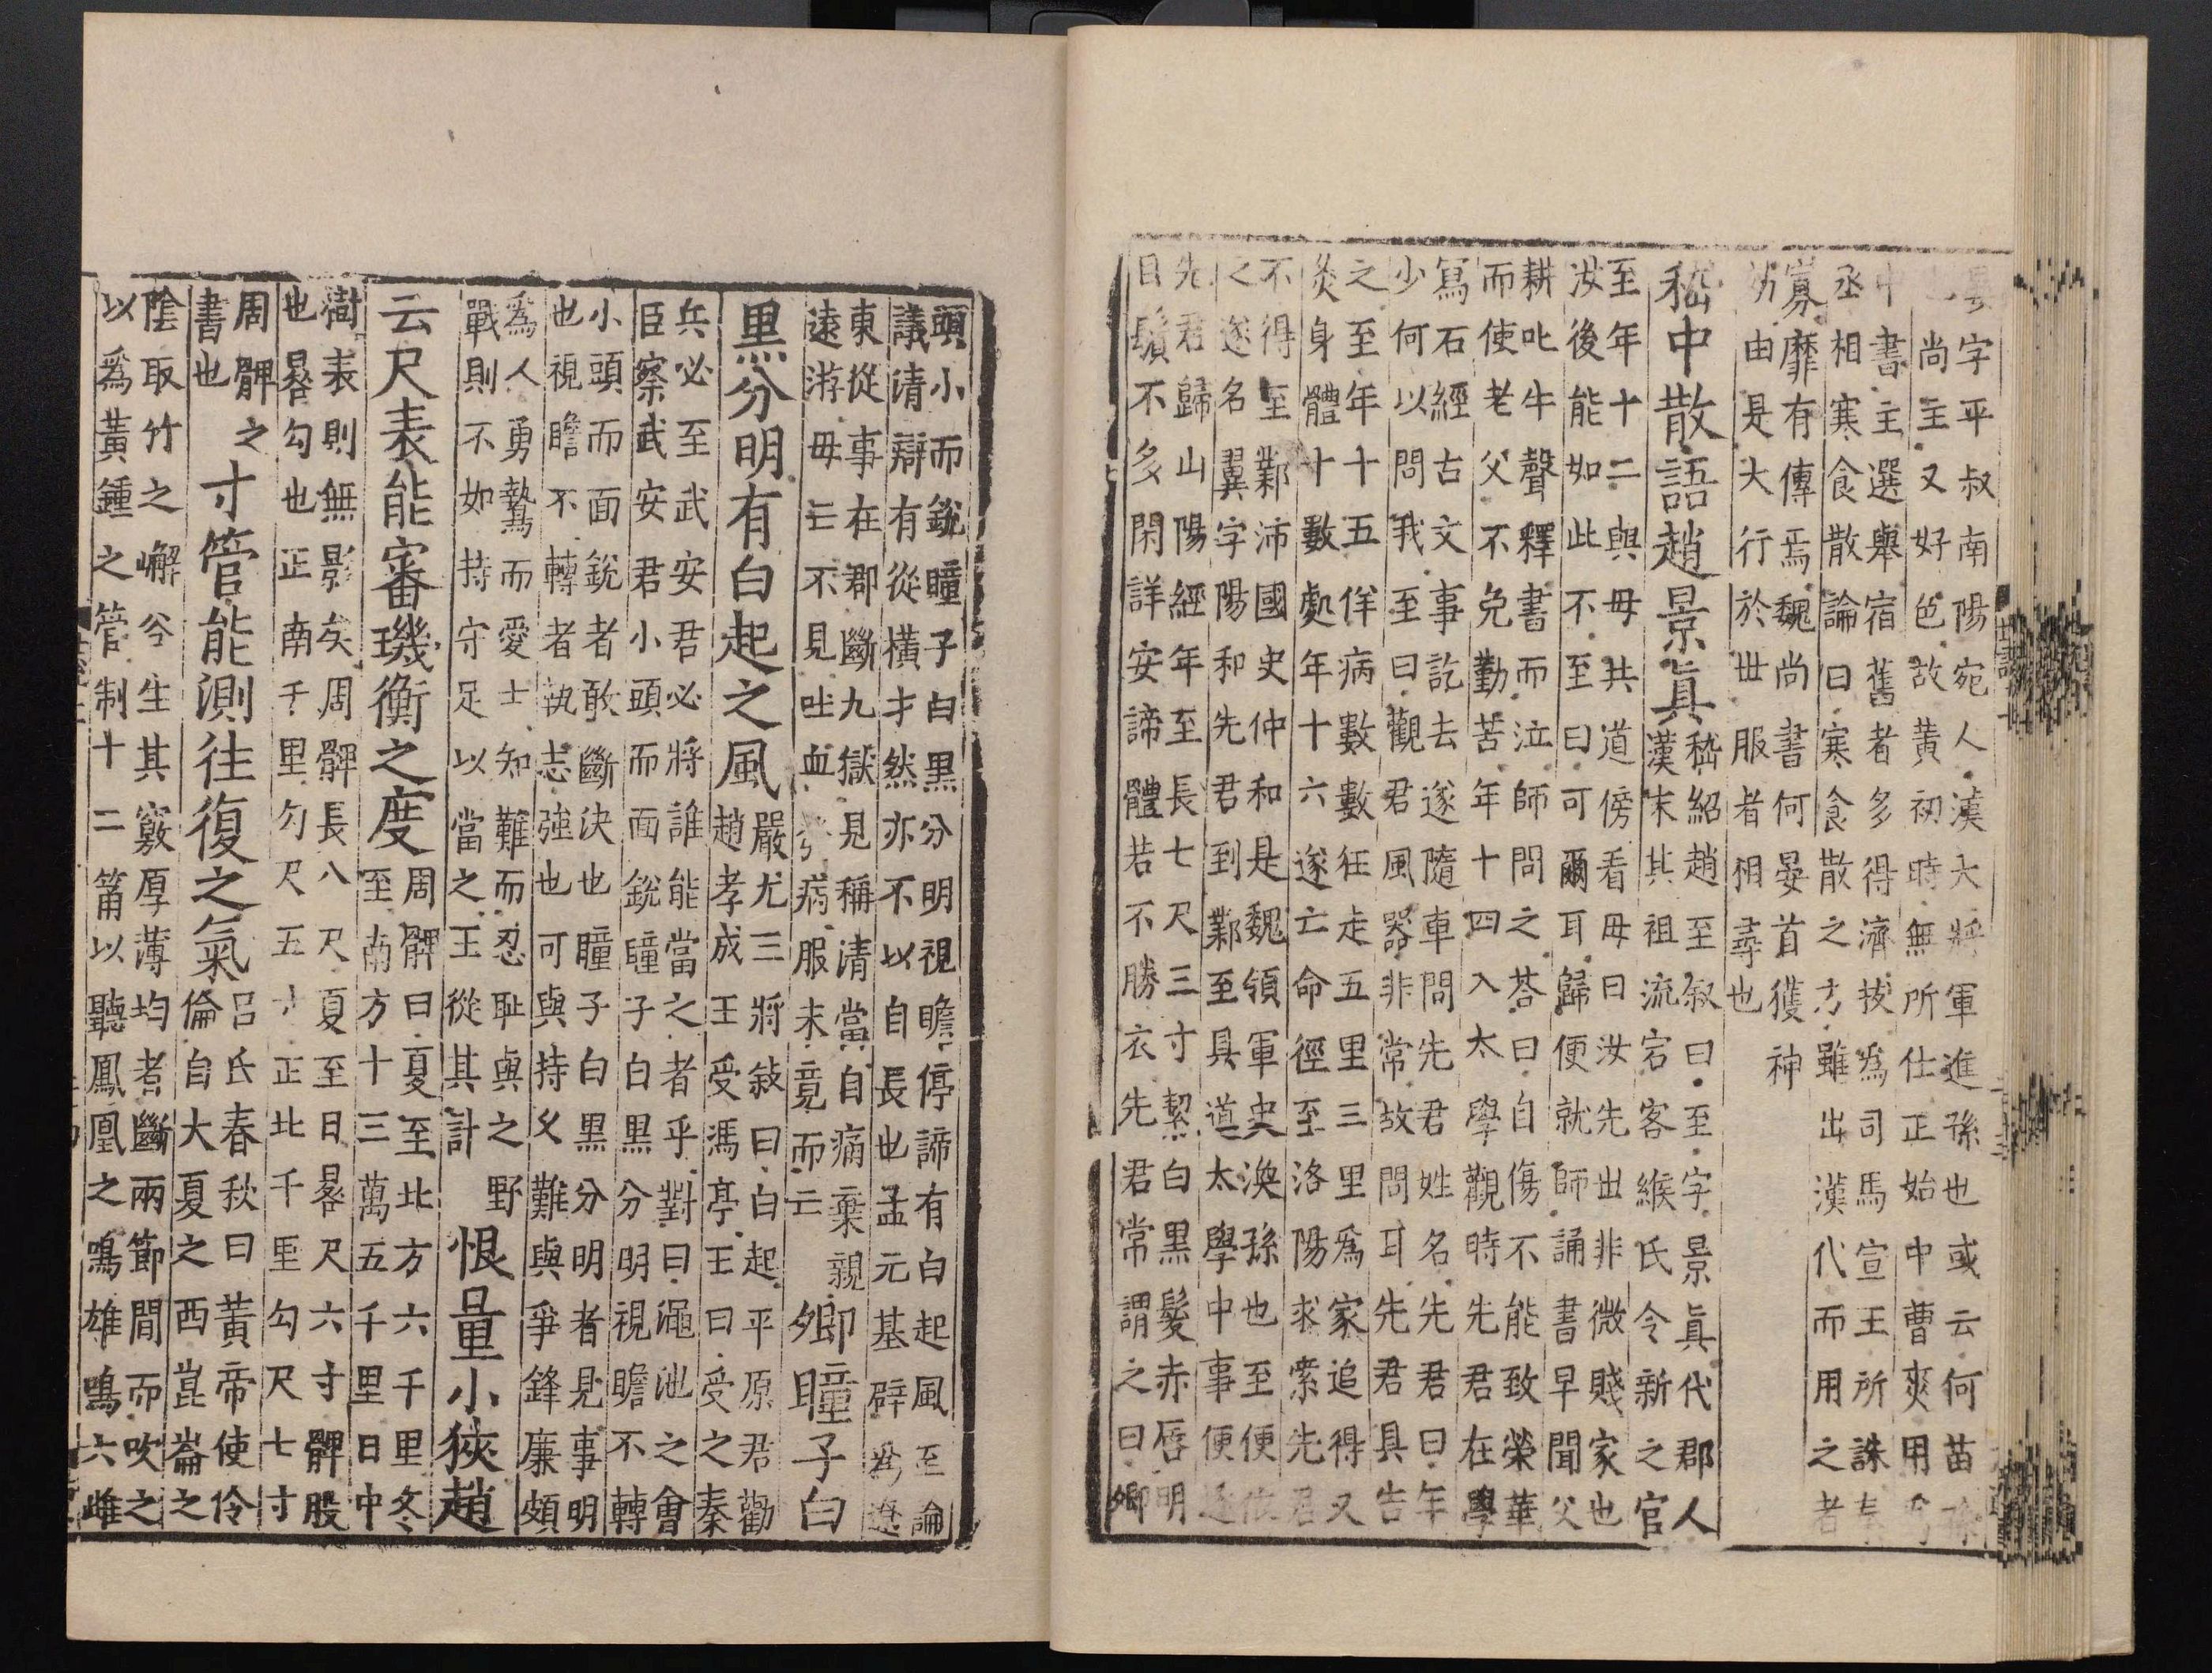 晏字平叔南陽宛人漢大將軍進孫也或云何苗孫
也尚主又好色故黃初時無所仕正始中曹爽用為
中書主選舉宿舊者多得濟拔為司馬宣王所誅秦
丞相寒食散論曰寒食散之方雖出漢代而用之者
寡靡有傳焉魏尚書何晏首獲神
効由是大行於世服者相尋也
嵇中散語趙景眞
嵇紹趙至叙曰至字景眞代郡人
漢末其祖流宕客緱氏令新之官
至年十二與母共道傍看母曰汝先世非微賤家也
汝後能如此不至曰可爾耳歸便就師誦書早聞父
耕叱牛聲釋書而泣師問之荅曰自傷不能致榮華
而使老父不免勤苦年十四入太學觀時先君在學
寫石經古文事訖去遂隨車問先君姓名先君曰年
少何以問我至曰觀君風器非常故問耳先君具告
之至年十五佯病數數狂走五里三里爲家追得又
炙身體十數處年十六遂亡命徑至洛陽求索先君
不得至鄴沛國史仲和是魏領軍史渙孫也至便依
之遂名翼字陽和先君到鄴至具道太學中事便逐
先君歸山陽經年至長七尺三寸絜白黑髮赤唇明
目鬚不多閑詳安諦體若不勝衣先君常謂之曰卿
頭小而銳瞳子白黑分明視瞻停諦有白起風至論
議清辯有從橫才然亦不以自長也孟元基辟爲遼
東從事在郡斷九獄見稱清當自痛棄親
遠游母亡不見吐血發病服未竟而亡
卿瞳子白
黑分明有白起之風
嚴尤三將敍曰白起平原君勸
趙孝成王受馮亭王曰受之秦
兵必至武安君必將誰能當之者乎對曰澠池之會
臣察武安君小頭而面銳瞳子白黑分明視瞻不轉
小頭而面銳者敢斷決也瞳子白黑分明者見事明
也視瞻不轉者執志強也可與持久難與爭鋒廉頗
爲人勇鷙而愛士知難而忍耻與之野
戰則不如持守足以當之王從其計
恨量小狹趙
云尺表能審璣衡之度
周髀曰夏至北方六千里冬
至南方十三萬五千里日中
樹表則無影矣周髀長八尺夏至日晷尺六寸髀股
也晷勾也正南千里勾尺五寸正北千里勾尺七寸
周髀之
書也
寸管能測往復之氣
呂氏春秋曰黃帝使伶
倫自大夏之西崑崙之
陰取竹之嶰谷生其竅厚薄均者斷兩節間而吹之
以爲黃鍾之管制十二筩以聽鳳凰之鳴雄鳴六雌